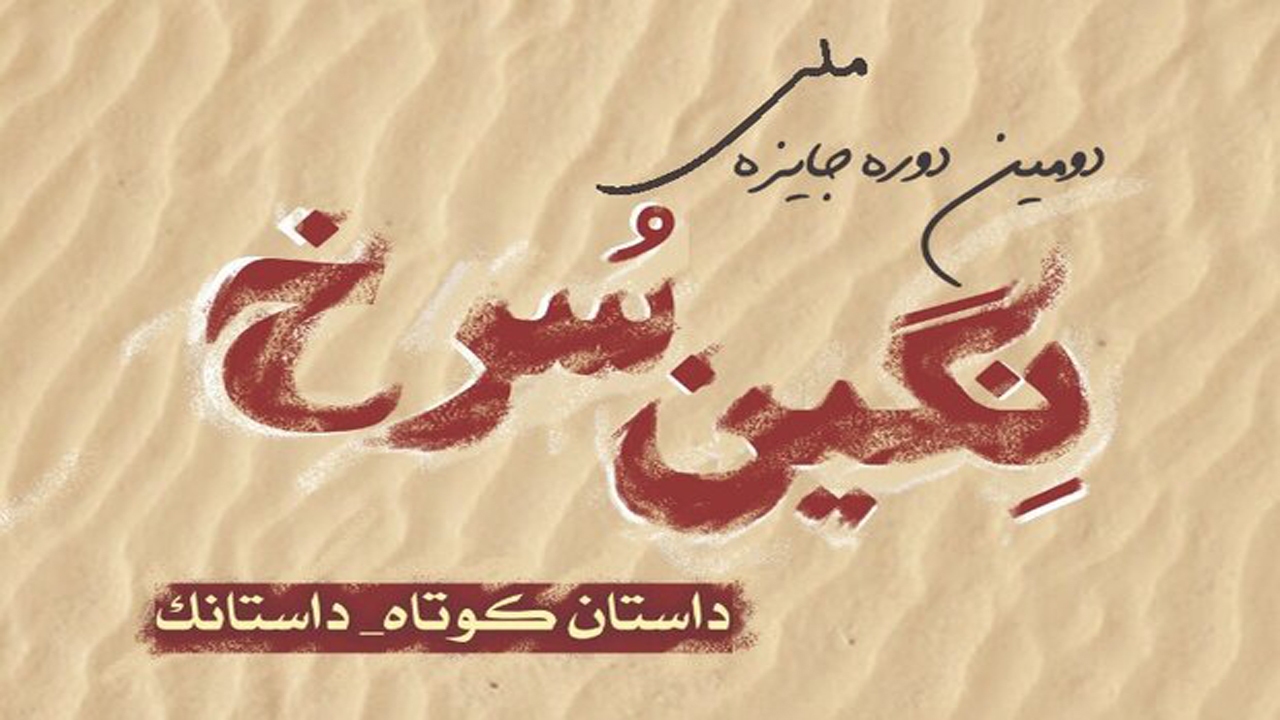 دومین دوره جایزه ملی
نِگین سُرخ
داستان کوتاه_ داستانك